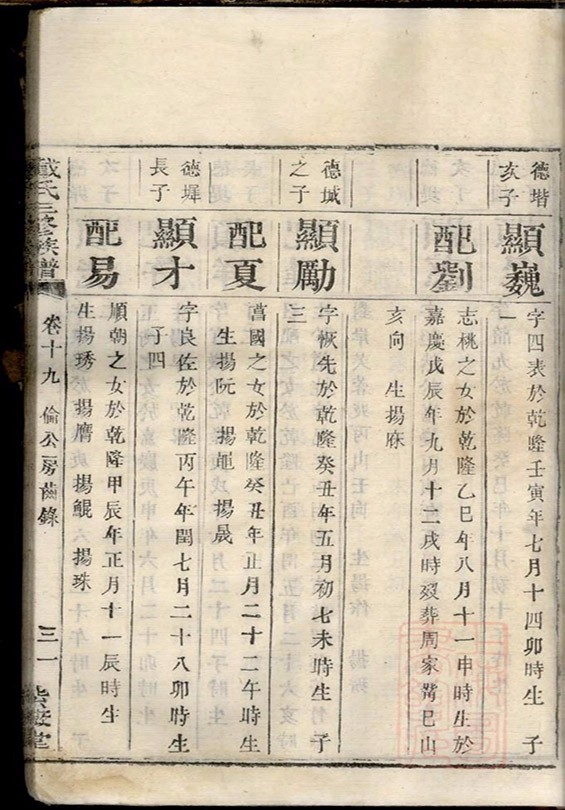 德堦
亥子
顯巍
字四表於乾隆壬寅年七月十四卯時生 子
一
配劉
志桃之女於乾隆乙巳年八月十一申時生於
嘉慶戊辰年九月十二戌時歿葬周家嘴巳山
亥向 生揚庥
德城
之子
顯勵
字恢先於乾隆癸丑年五月初七未時生 子
三
配夏
國之女於乾隆癸丑年正月二十二午時生
生揚阮 揚 揚晟
德墀
長子
顯才
字良佐於乾隆丙午年閏七月二十八卯時生
子四
配易
順朝之女於乾隆甲辰年正月十一辰時生
生揚琇 揚膺 揚鯤 揚珠
戴氏三修族譜
卷十九 倫公房齒錄
三一
堂